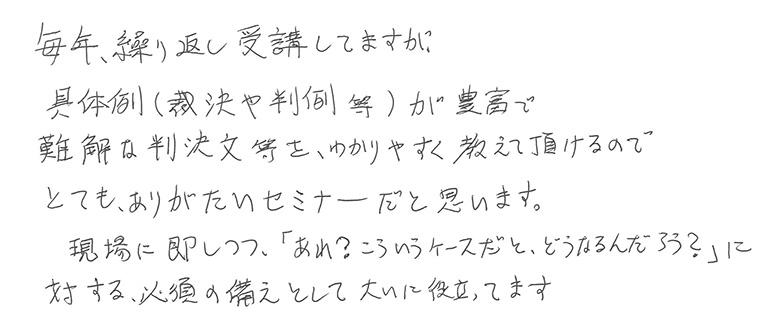 毎年、繰り返し受講してますが、
具体例(裁決や判例等)が豊富で
難解な判決文等を、わかりやすく教えて頂けるので
とても、ありがたいセミナーだと思います。
現場に即しつつ、「あれ?こういうケースだと、どうなるんだろう?」に
対する、必須の備えとして大いに役立ってます